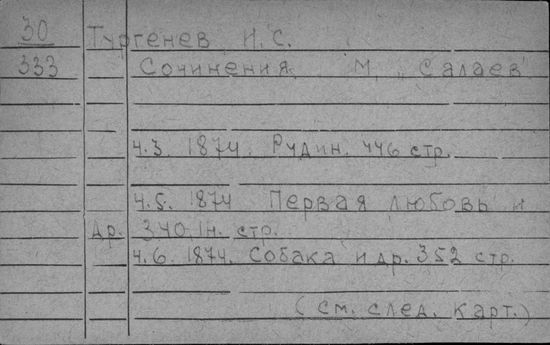 30 Тургенев И.С.
333 Сочинения. М, „Салаев"
ч.3. 1874. Рудин. 446 стр.
ч.5. 1874 Первая любовь и
др. 340, стр.
ч.6. 1874. Собака и др. 352 стр.
(см. след. карт.)